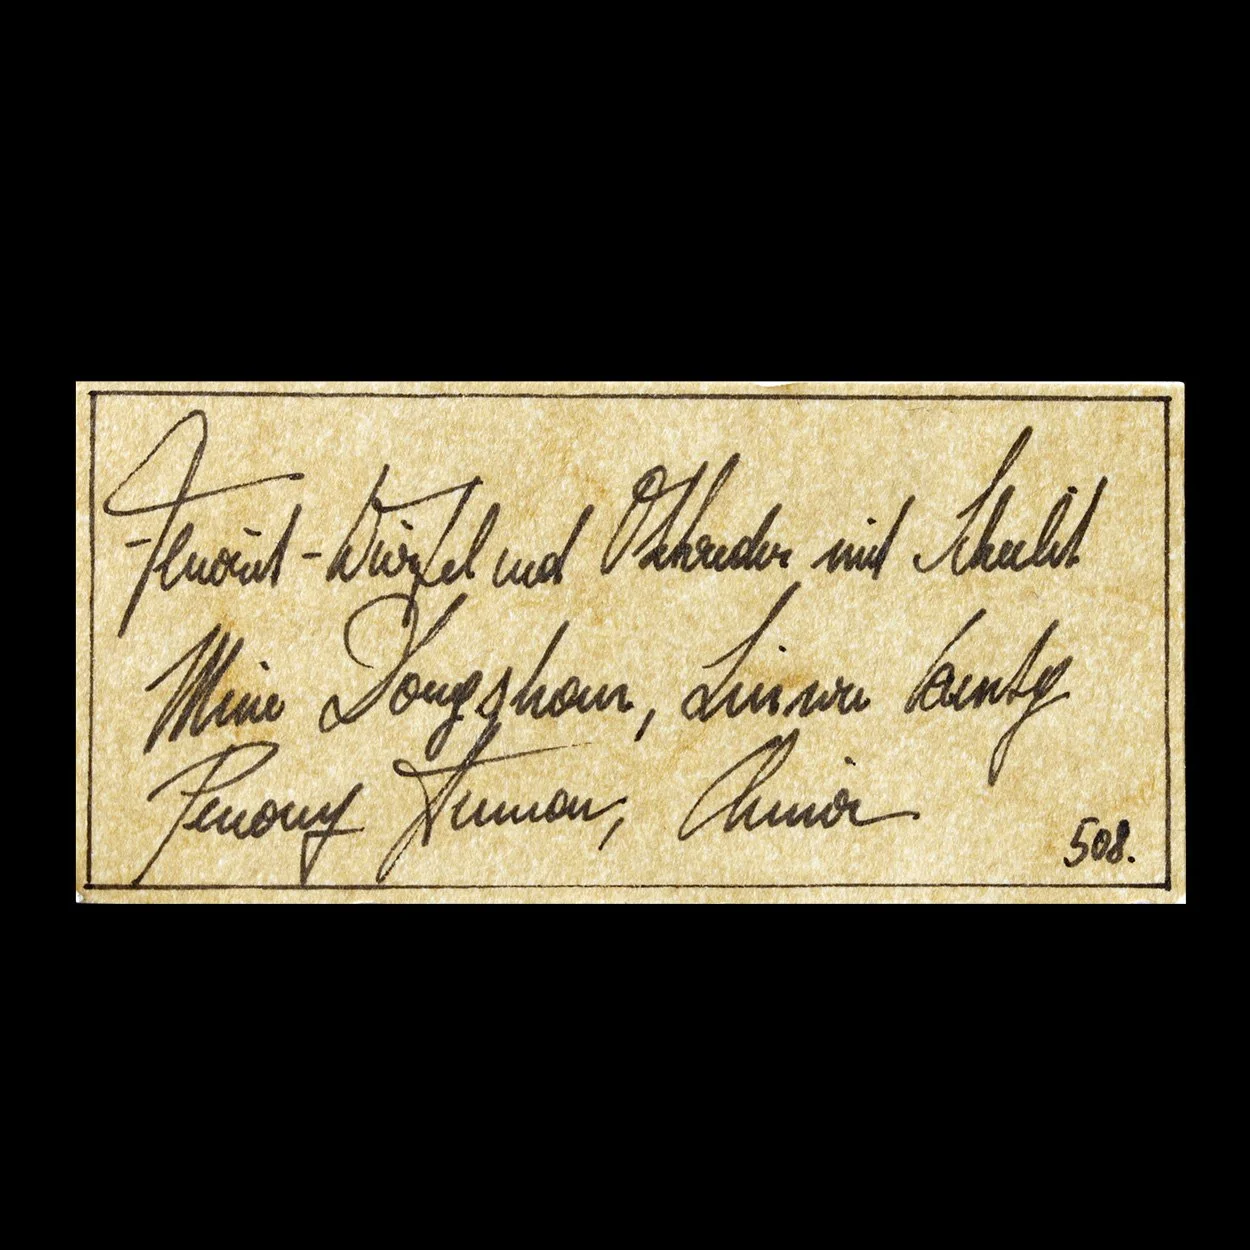 Fluorit-Würfel und Oktaeder mit Scheelit
Mine Xongshan, Linwu County
Penouy Hunan, China
508.